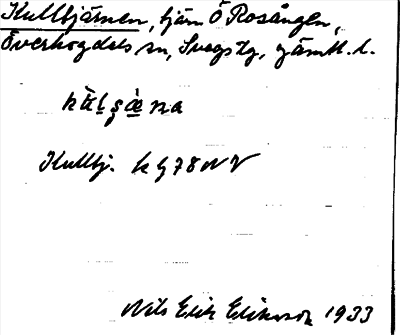 Kullbjärnen, tjärn Ö Rosången,
Överhogdals sn, Svegs tg, Jämtl. l.
Kullbj. k G 78 NV
Nils Erik Eriksson 1933